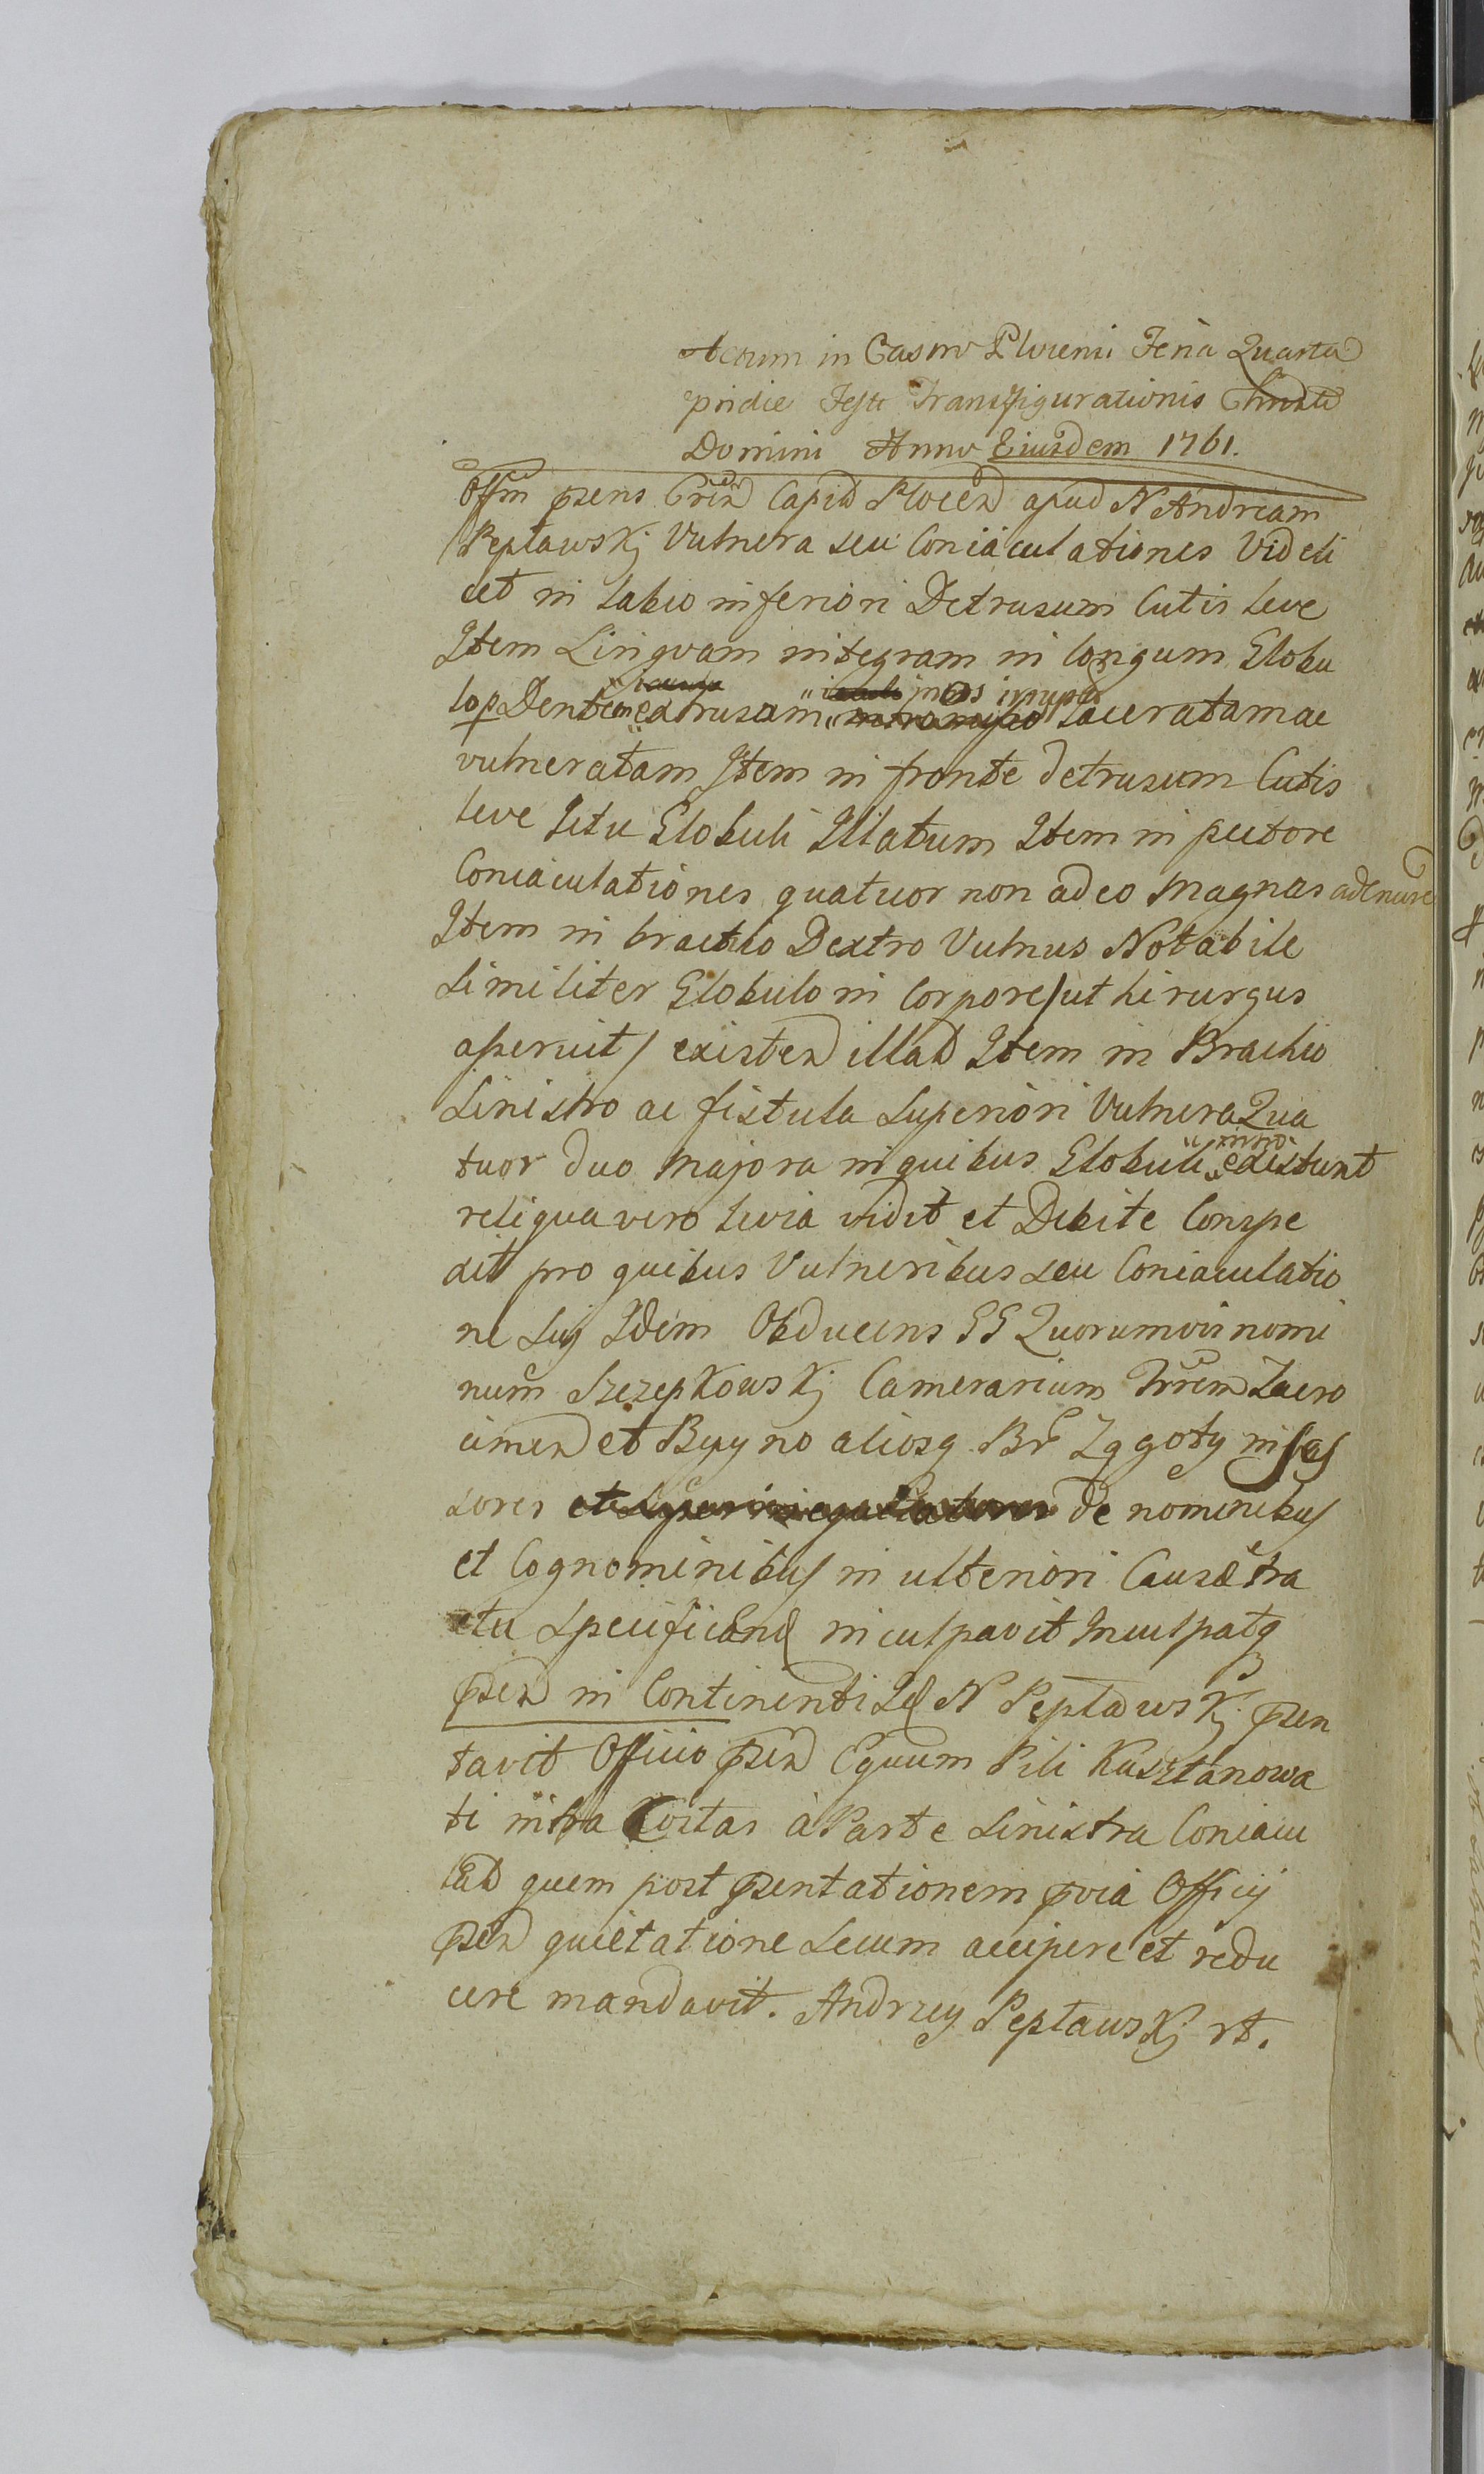 Actum in Castro Plocensi Feria Quarta
pridie Festi Transfigurationis Christi
Domini Anno Eiusdem 1761.
Offm psens Capid Plocen apud N Andream
Peptawskj Vulnera seu Coniaculationes Videli
cet in labio inferiori Detrusum Cutis leve
Item Lingvam integram in longum Globu
lo p Dentem extrusam in os laceratam ac
vulneratam Item in fronte detrusum Cutis
leve Ictu Globuli Illatum Item in pectore
Coniaculationes quatuor non adeo magnas
Item in brachio Dextro Vulnus Notabile
Similiter Globulo in Corpore/ut hirurgus
asseruit/ existen illat Item in Brachio
Sinistro ac fistula Superiori Vulnera Qua
tuor duo majora in quibus Globuli existunt
reliqua vero levia vidit et Debite Conspe
xit pro quibus Vulneribus seu Coniaculatio
ne Suj Idem Obducens GG Quorumvis nomi
num Szczepkowskj Camerarium Zacro
cimen et aliosq in vas
sores de nominibus
et Cognominibus in ulteriori Causae tra
ctu Specificand inculpavit Inculpatq
psen in Continenti Id N Peptawskj psen
tavit Officio psen Equum Pili Kasztanowa
ti infra Costas à Parte Sinistra Coniacu
lat quem post psentationem pvia Officij
psen quietatione Secum accipere et redu
cere mandavit. Andrzey Peptawskj